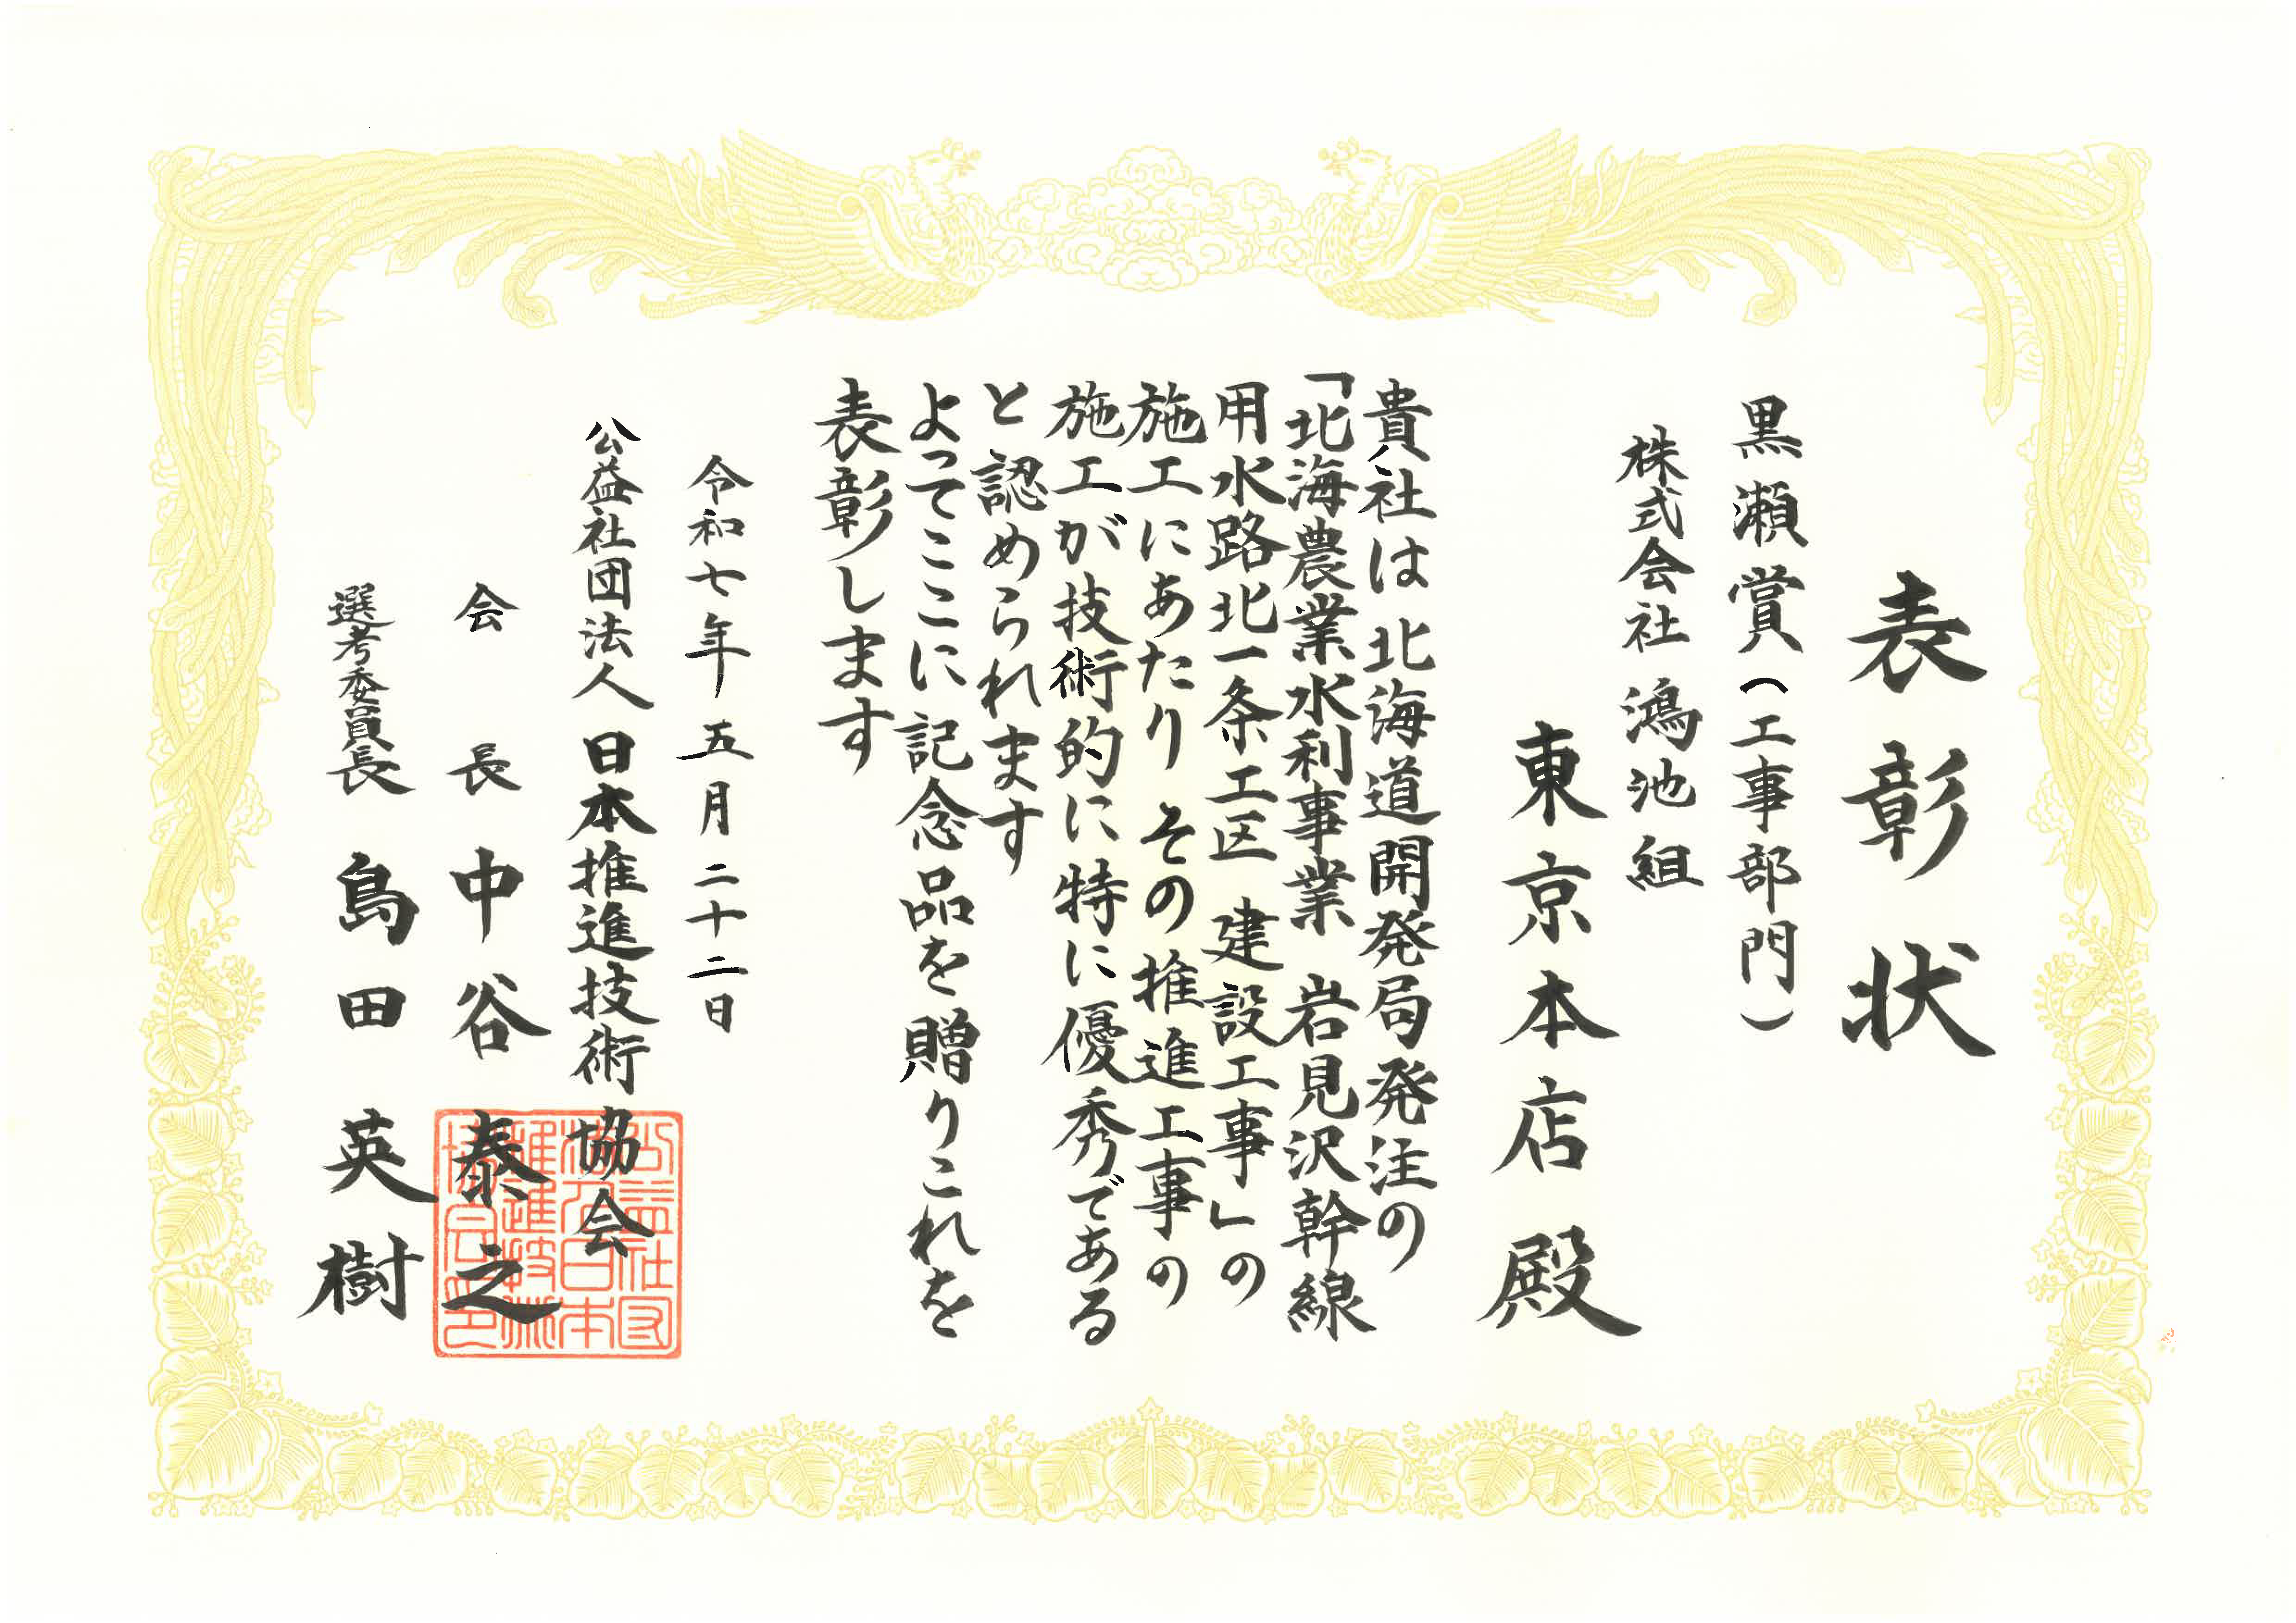 表彰状
黒瀬賞（工事部門）
株式会社 鴻池組
東京本店 殿
貴社は北海道開発局発注の
「北海農業水利事業 岩見沢幹線
用水路北一条工区 建設工事」の
施工にあたり その推進工事の
施工が技術的に特に優秀である
と認められます
よってここに記念品を贈りこれを
表彰します
令和七年五月二十二日
公益社団法人 日本推進技術協会
会長 中谷 泰之
選考委員長 島田 英樹
公益社団
法人日本
推進技術
協会之印